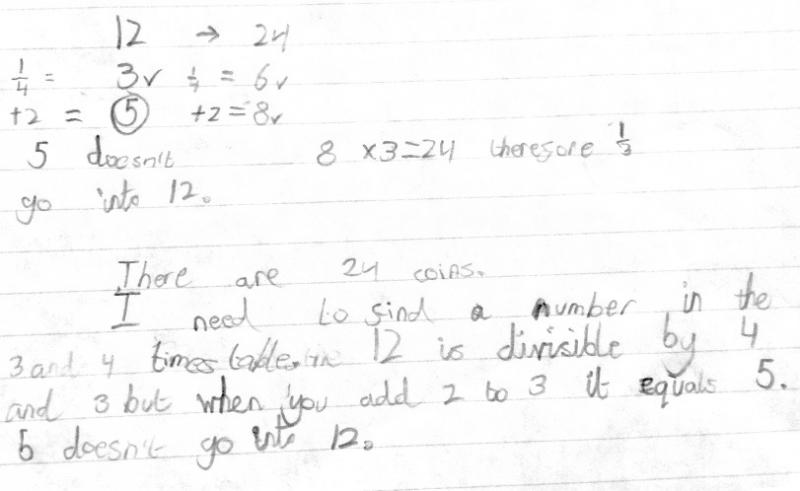 12 → 24
1/4 = 3✓ 1/4 = 6✓
+2 = 5 +2 = 8✓
5 doesn't 8 ×3=24 therefore 1/3
go into 12.
There are 24 coins.
I need to find a number in the
3 and 4 times table. 12 is divisible by 4
and 3 but when you add 2 to 3 it equals 5.
5 doesn't go into 12.